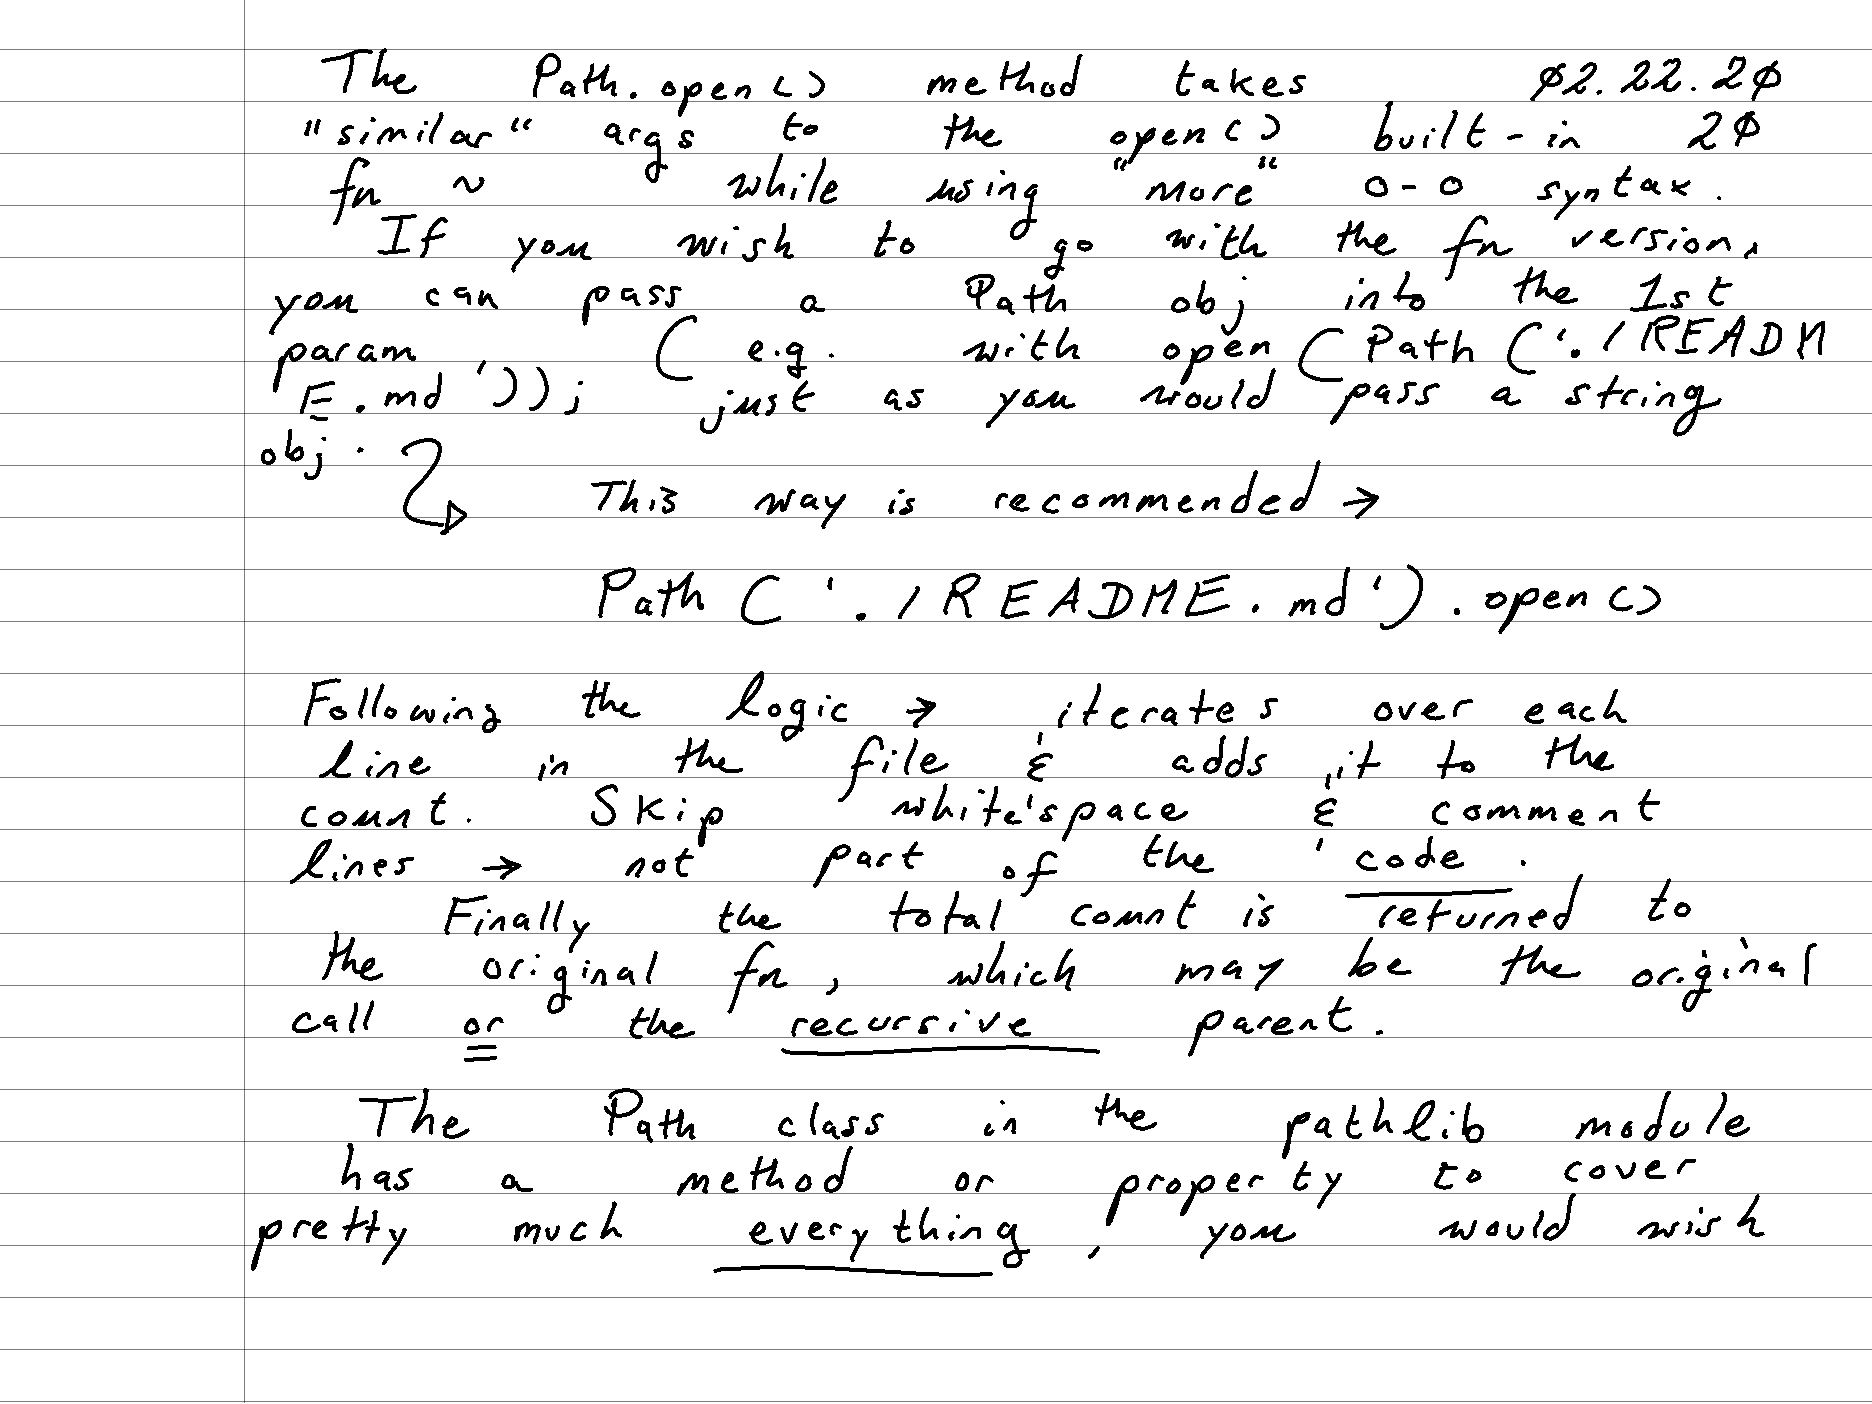 The Path.open() method takes 02.22.20
"similar" args to the open() built-in 20
fn ~ while using "more" o-o syntax.
If you wish to go with the fn version,
you can pass a Path obj into the 1st
param, (e.g. with open(Path('./READM
E.md')); just as you would pass a string
obj.
This way is recommended →
Path('./README.md').open()
Following the logic → iterates over each
line in the file & adds it to the
count. Skip white'space & comment
lines → not part of the code.
Finally the total count is returned to
the original fn, which may be the original
call or the recursive parent.
The Path class in the pathlib module
has a method or property to cover
pretty much everything, you would wish